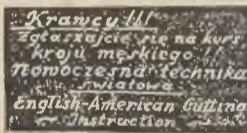 Krawcy!!!
Zgłaszajcie się na kurs
kroju męskiego
Nowoczesna technika
światowa
English-American Cutting
Instruction